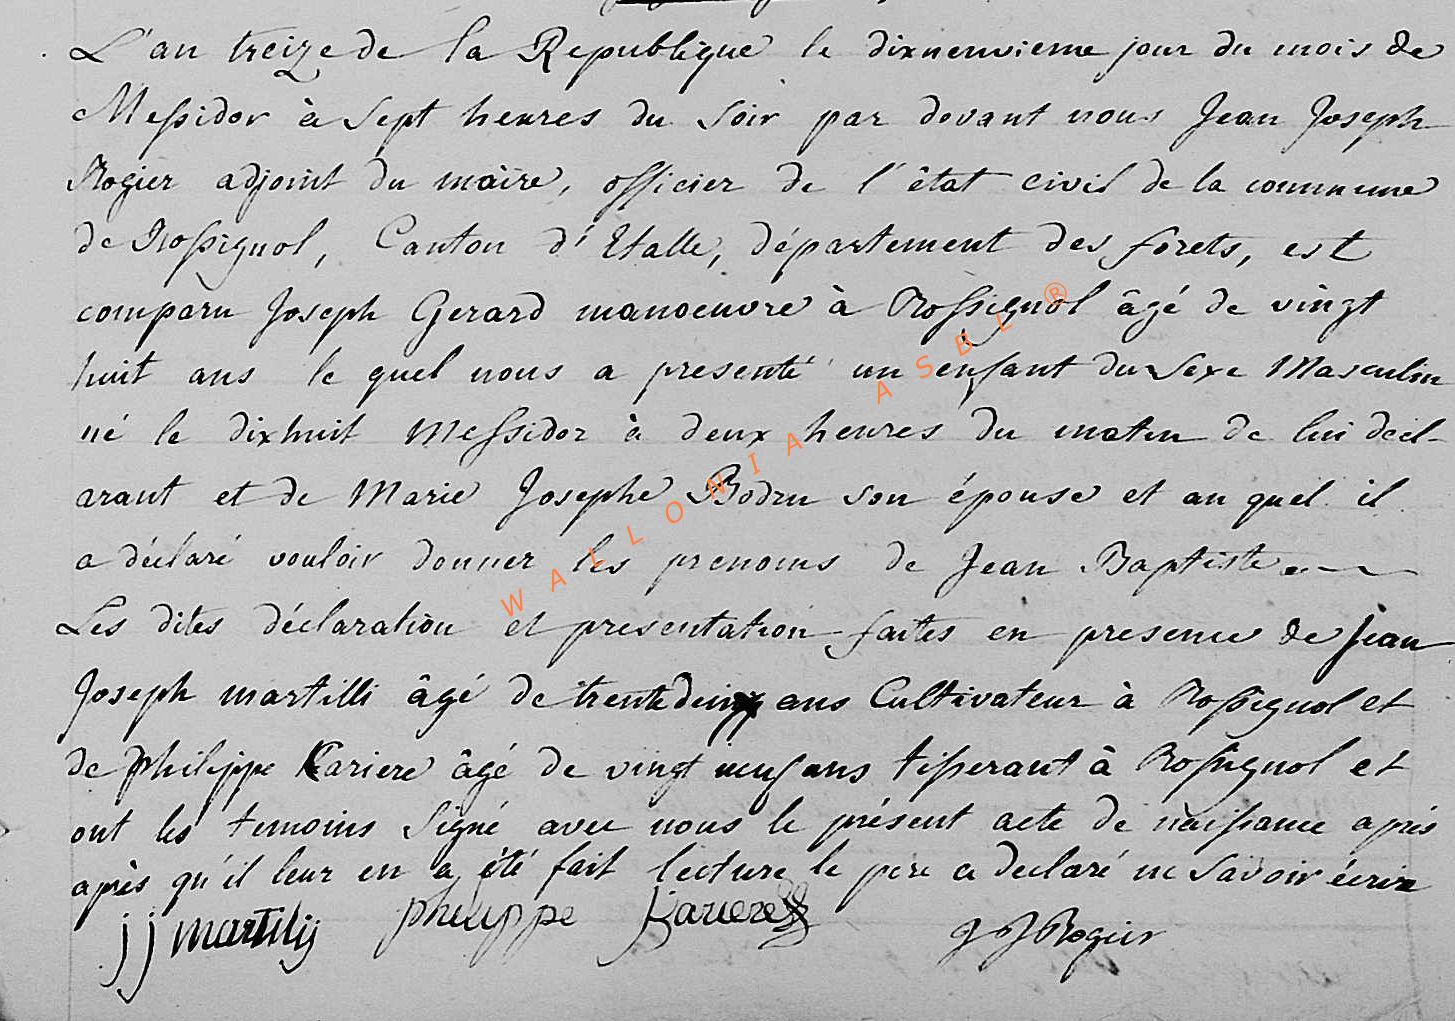 L'an treize de la Republique le dixneuvieme jour du mois de
Messidor à Sept heures du soir par devant nous Jean Joseph
Rogier adjoint du maire, officier de l'êtat civil de la commune
de Rossignol, Canton d'Etalle, département des forets, est
comparu Joseph Gerard manoeuvre à Rossignol âgé de vingt
huit ans le quel nous a presenté un enfant du Sexe Masculin
né le dixhuit Messidor à deux heures du matin de lui décl-
arant et de Marie Josephe Bodru son épouse et au quel il
a déclaré vouloir donner les prenoms de Jean Baptiste
Les dites déclaration et presentation faites en presence de Jean
Joseph martilli âgé de trente deux ans Cultivateur à Rossignol et
de philippe Kariere âgé de vingt neuf ans tisserant à Rossignol et
ont les temoins Signé avec nous le présent acte de naissance aprés
après qu'il leur en a été fait lecture le pere a declaré ne Savoir écrire
jj martilij philippe kariere JJ Rogier
WALLONIA ASBL ®